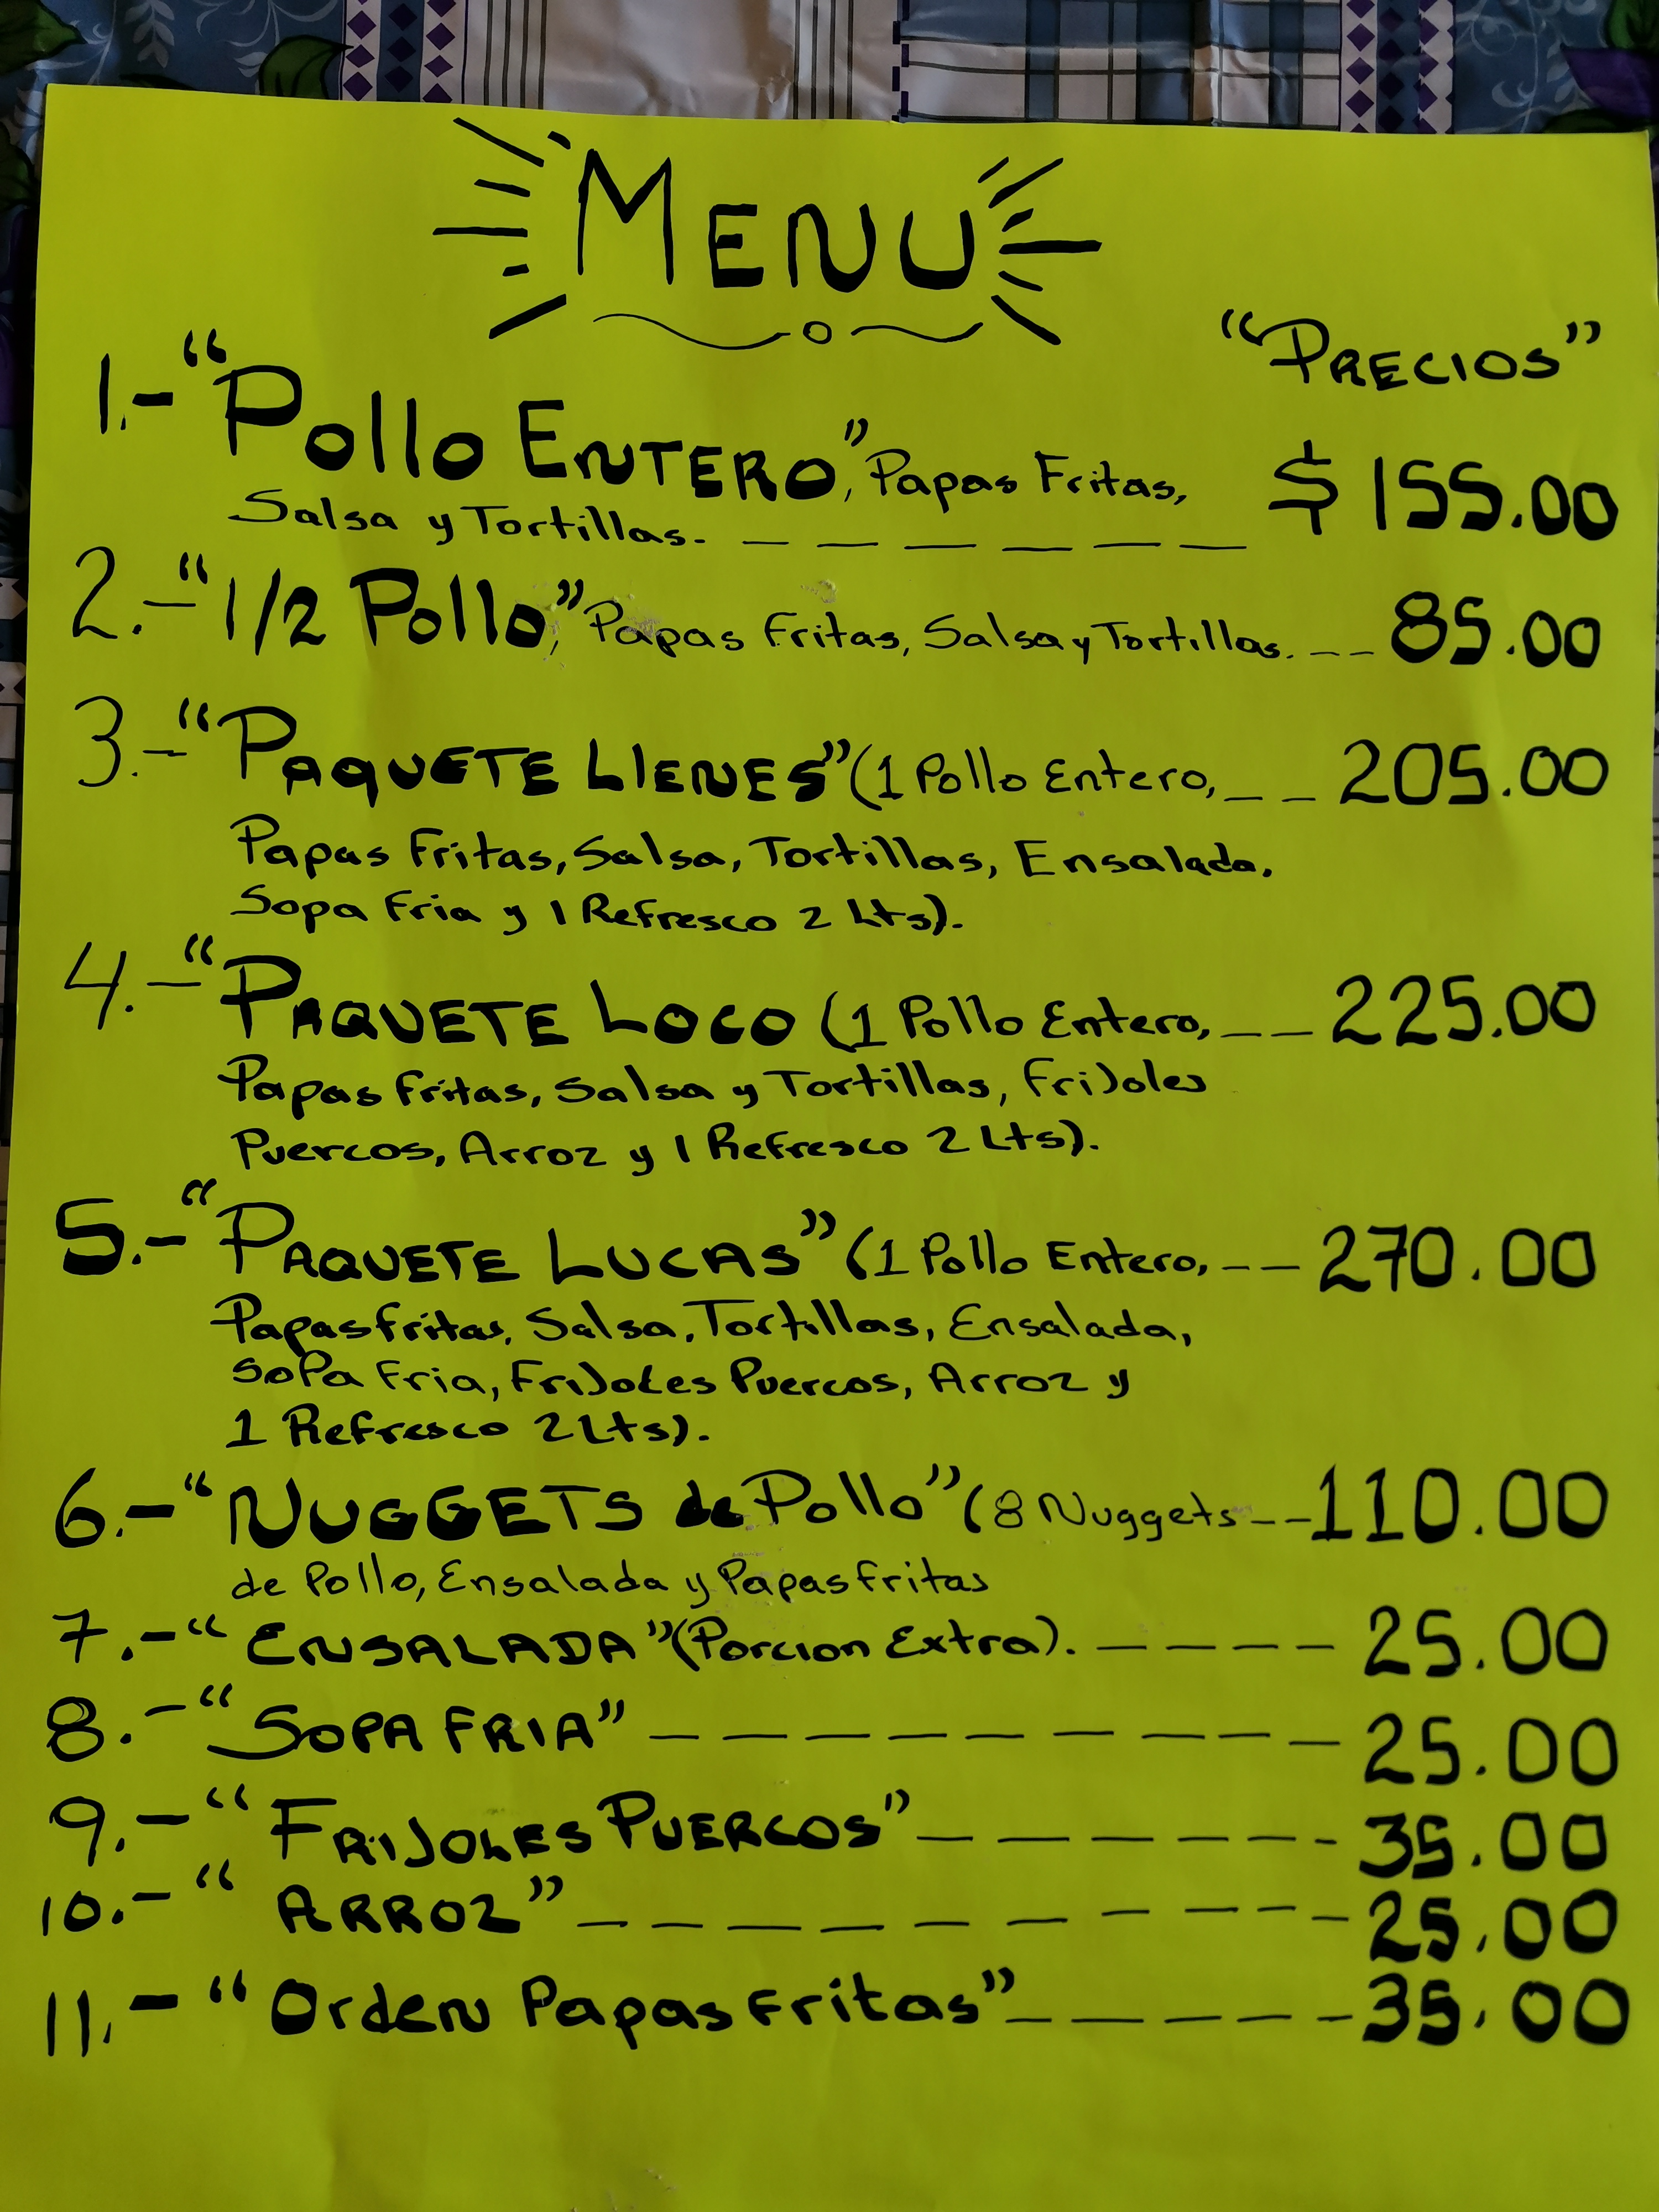 MENU
"PRECIOS"
1.- "Pollo ENTERO", Papas Fritas, $ 155.00
Salsa y Tortillas. - - - - - -
2.- "1/2 Pollo", Papas Fritas, Salsa y Tortillas. - - - 85.00
3.- "PAQUETE LlENES" (1 Pollo Entero, - - 205.00
Papas Fritas, Salsa, Tortillas, Ensalada,
Sopa Fria y 1 Refresco 2 Lts).
4.- "PAQUETE LOCO (1 Pollo Entero, - - 225.00
Papas Fritas, Salsa y Tortillas, Frijoles
Puercos, Arroz y 1 Refresco 2 Lts).
5.- "PAQUETE LUCAS" (1 Pollo Entero, - - 270.00
Papas fritas, Salsa, Tortillas, Ensalada,
Sopa Fria, Frijoles Puercos, Arroz y
1 Refresco 2 Lts).
6.- "NUGGETS de Pollo" (8 Nuggets - - 110.00
de Pollo, Ensalada y Papas fritas
7.- "ENSALADA" (Porcion Extra). - - - - 25.00
8.- "SOPA FRIA" - - - - - - - - - 25.00
9.- "FRIJOLES PUERCOS" - - - - - - 35.00
10.- "ARROZ" - - - - - - - - - - 25.00
11.- "Orden Papas Fritas" - - - - - - 35.00